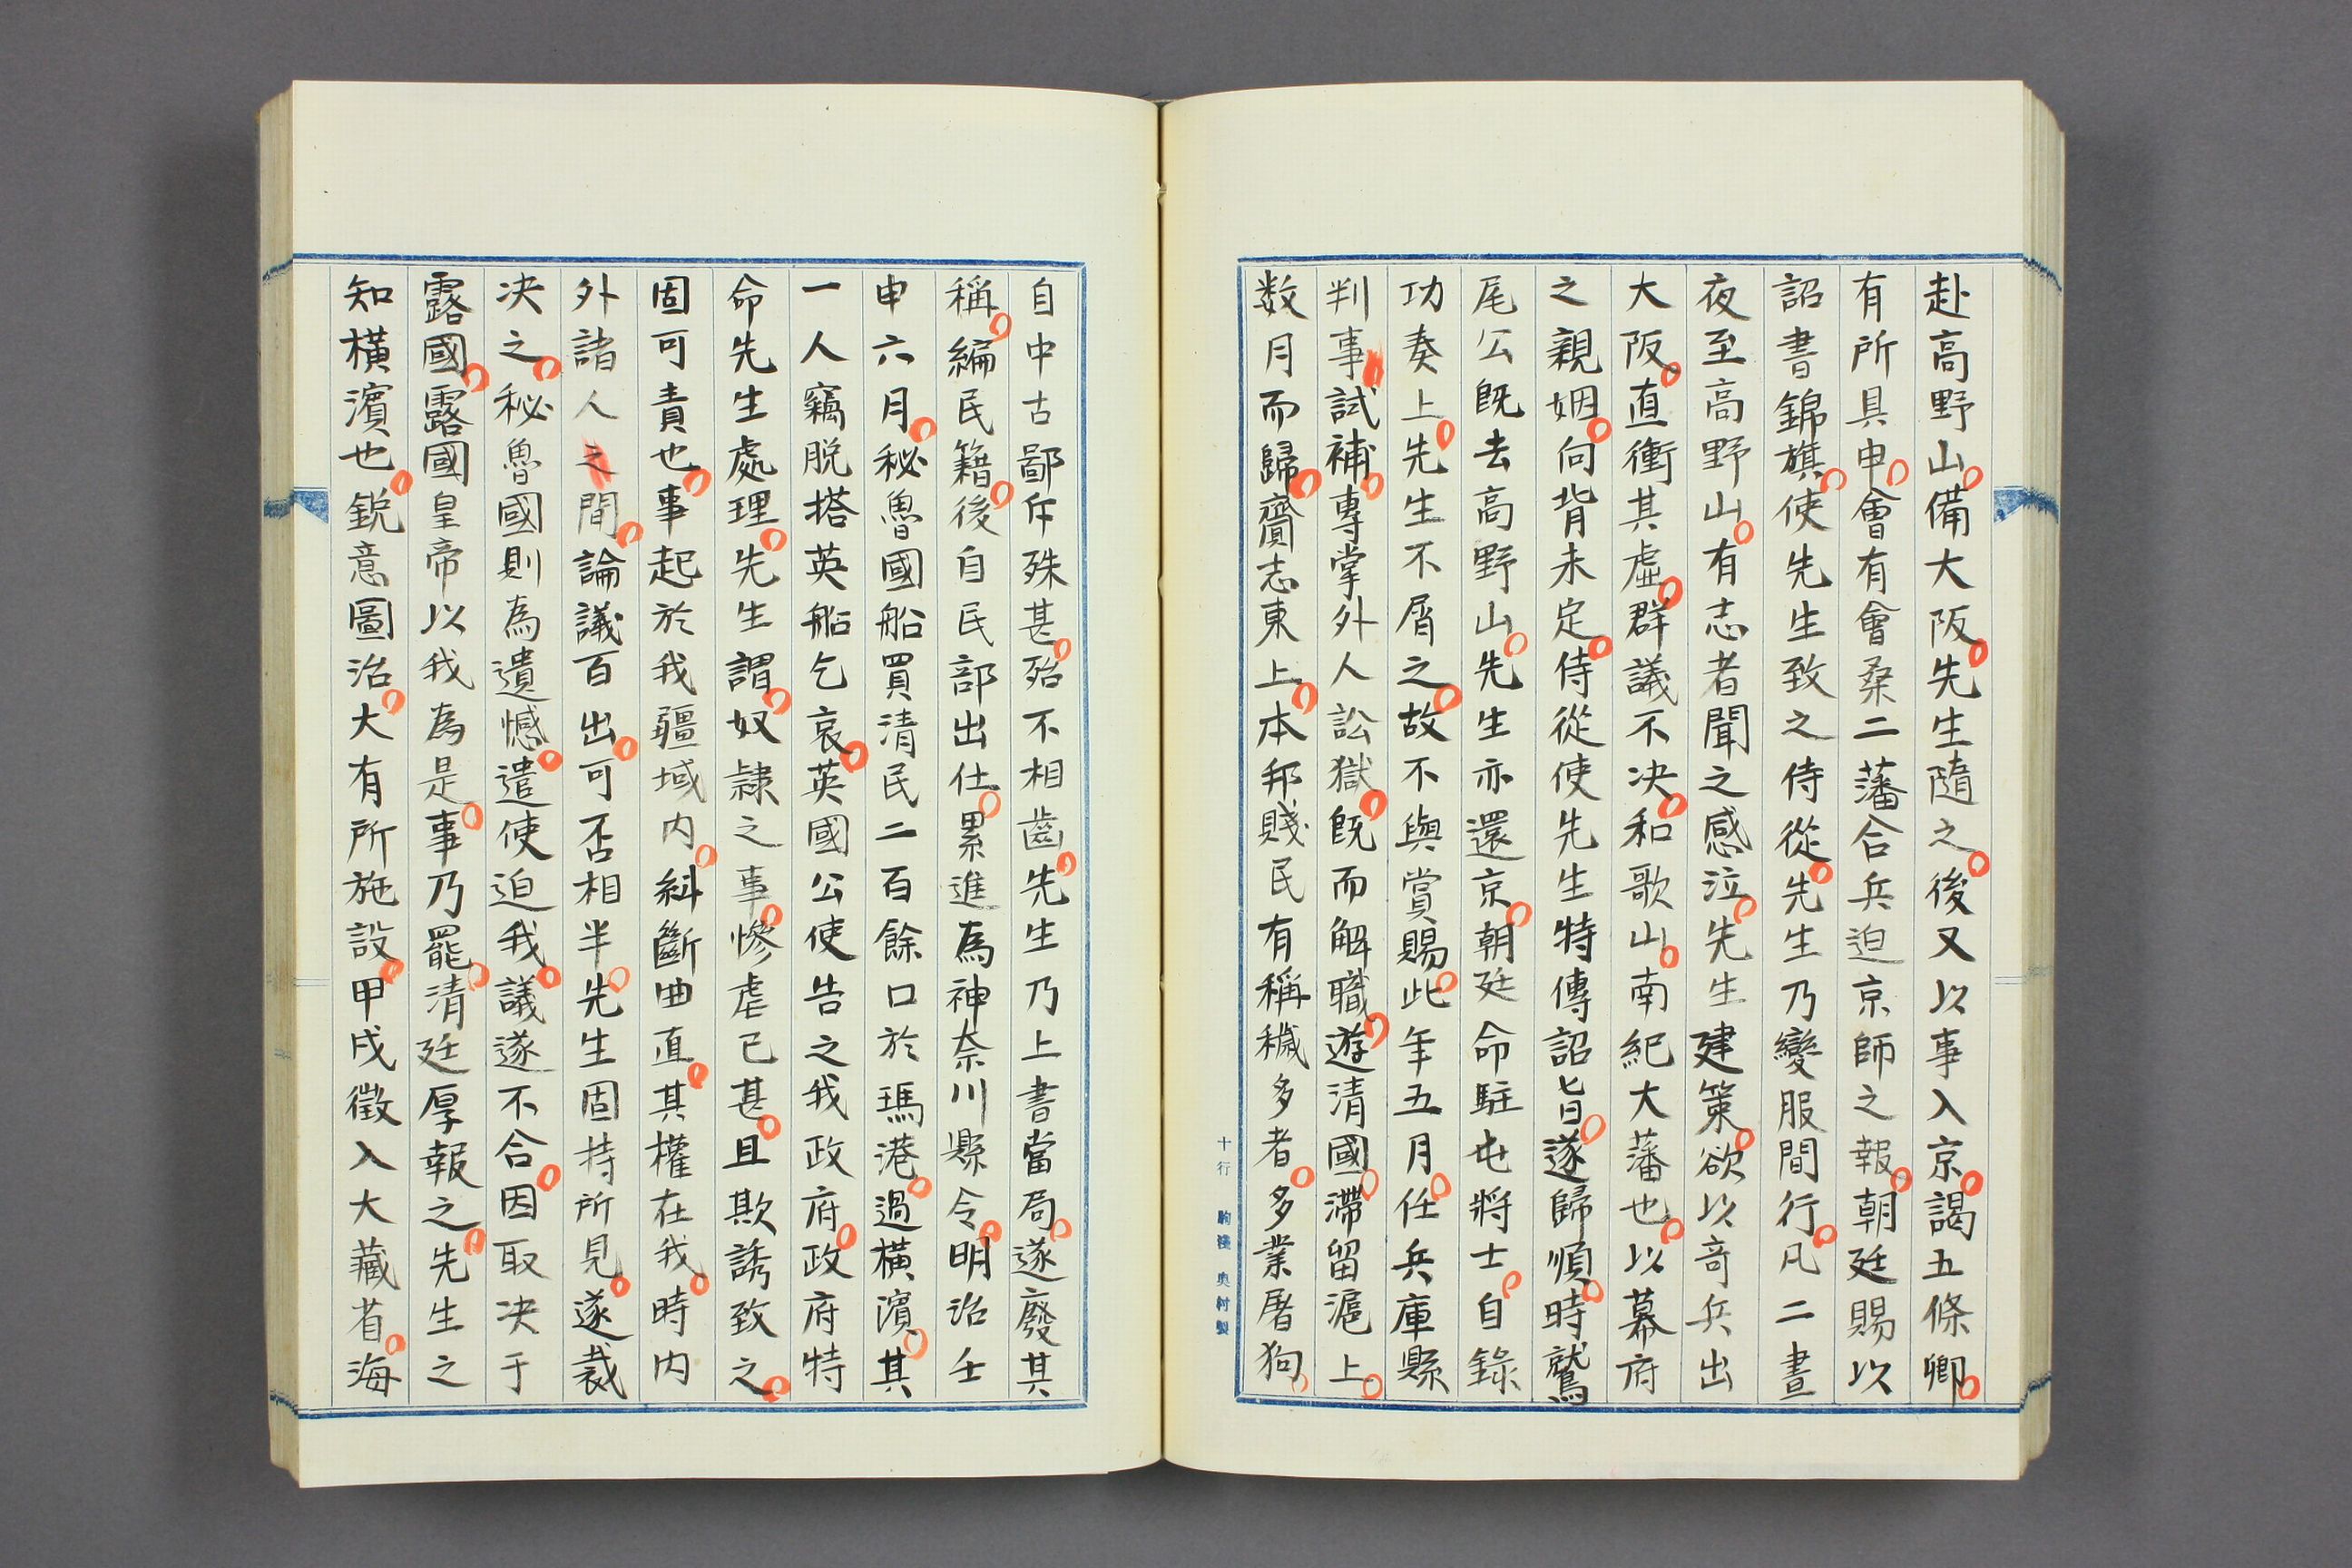 赴高野山備大阪先生隨之後又以事入京謁五條卿
有所具申會有會桑二藩合兵迫京師之報朝廷賜以
詔書錦旗使先生致之侍從先生乃變服間行凡二晝
夜至高野山有志者聞之感泣先生建策欲以奇兵出
大阪直衝其虛群議不决和歌山南紀大藩也以幕府
之親姻向背未定侍從使先生特傳詔旨遂歸順時鷲
尾公既去高野山先生亦還京朝廷命駐屯將士自錄
功奏上先生不屑之故不與賞賜此年五月任兵庫縣
判事試補專掌外人訟獄既而解職遊清國滯留滬上
数月而歸齎志東上本邦賤民有稱穢多者多業屠狗
自中古鄙斥殊甚殆不相齒先生乃上書當局遂廢其
稱編民籍後自民部出仕累進為神奈川縣令明治壬
申六月秘魯國船買清民二百餘口於瑪港過橫濱其
一人竊脫搭英船乞哀英國公使告之我政府政府特
命先生處理先生謂奴隷之事慘虐已甚且欺誘致之
固可責也事起於我疆域内糾斷曲直其權在我時内
外諸人之間論議百出可否相半先生固持所見遂裁
决之秘魯國則為遺憾遣使迫我議遂不合因取决于
露國露國皇帝以我為是事乃罷清廷厚報之先生之
知橫濱也銳意圖治大有所施設甲戌徵入大藏省海
十行